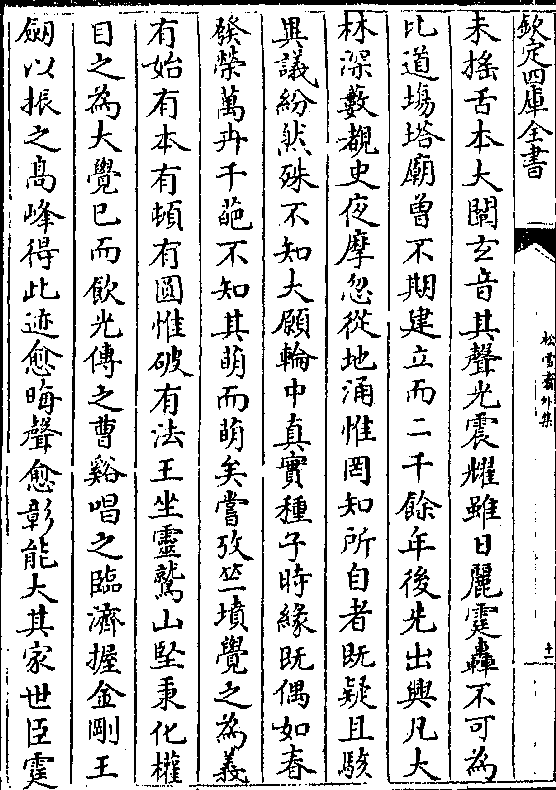 欽定四庫全書
松雪齋外集
十一
未搖舌本大闡玄音其聲光震耀雖日麗霆轟不可為
比道塲塔廟曽不期建立而二千餘年後先出興凡大
林深藪覩史夜摩忽從地涌惟罔知所自者既疑且駭
異議紛然殊不知大願輪中真實種子時緣既偶如春
發榮萬卉千葩不知其萌而萌矣嘗攷竺墳覺之為義
有始有本有頓有圓惟破有法王坐靈鷲山堅秉化權
目之為大覺已而飲光傳之曹谿唱之臨濟握金剛王
劒以振之髙峰得此迹愈晦聲愈彰能大其家世臣霆